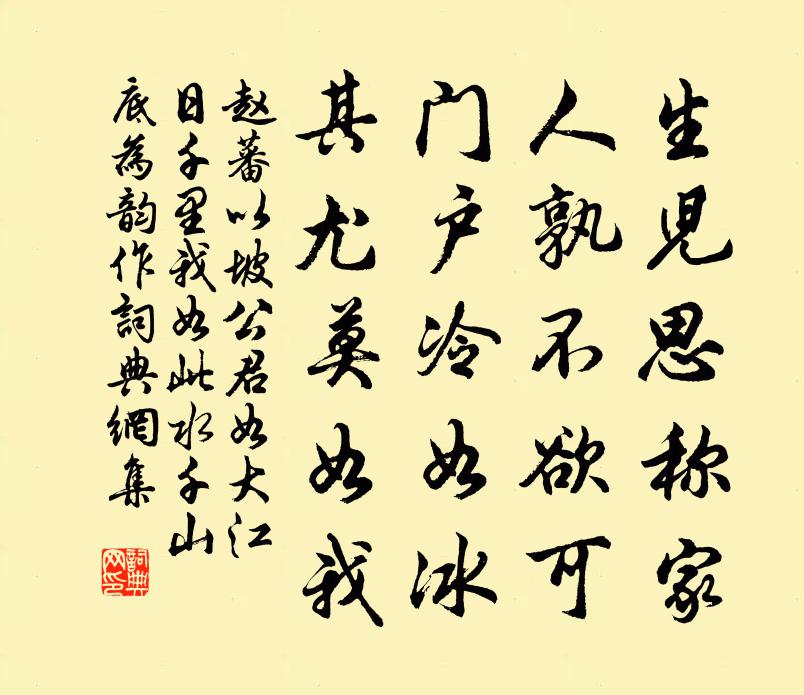 生兒思称家
人孰不欲可
门户冷如冰
其尤莫如我
赵蕃以坡公君如大江
日千里我如此水千山
底為韵作詞典網集
詞典網印